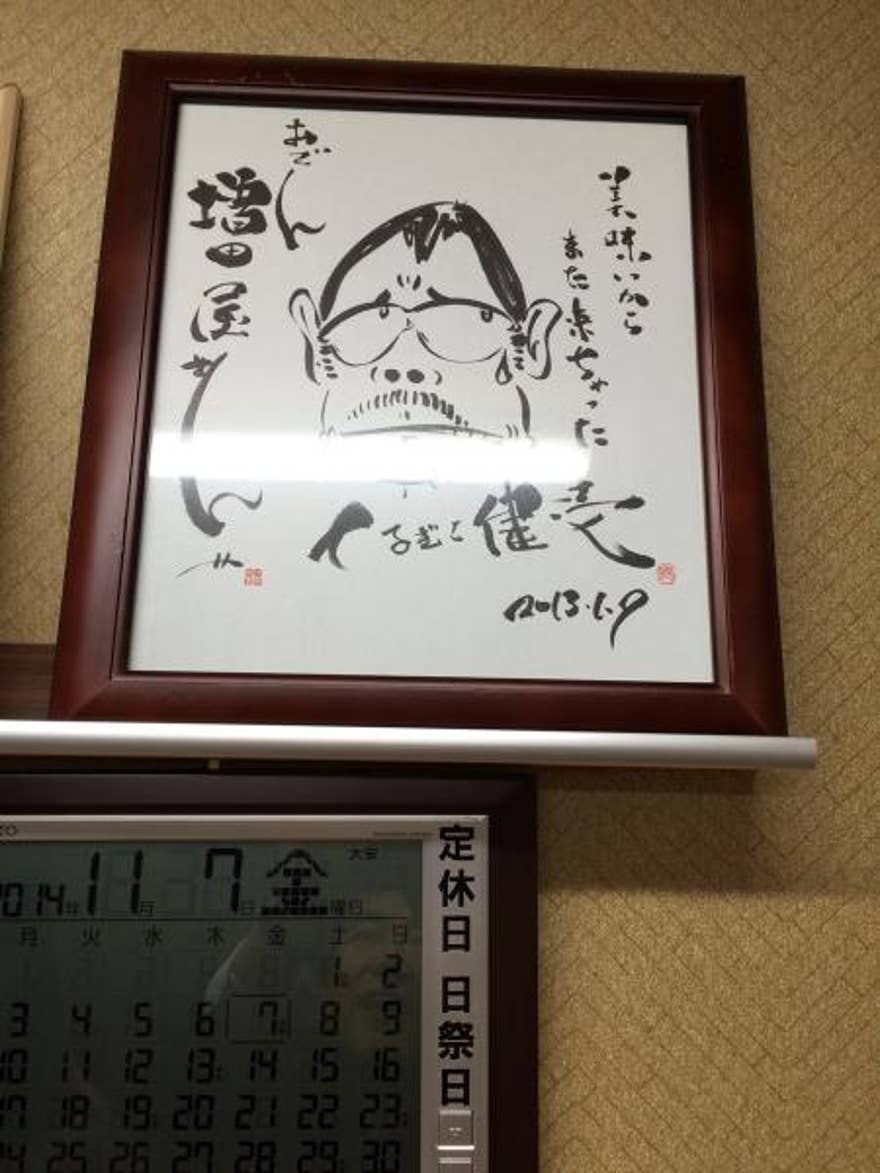 美味いから
また来ちゃった
おでん
増田屋さん江
2013.1.9
2014年11月7日金曜日
大安
月 火 水 木 金 土 日
1 2
3 4 5 6 7 8 9
10 11 12 13 14 15 16
17 18 19 20 21 22 23
24 25 26 27 28 29 30
定休日 日祭日